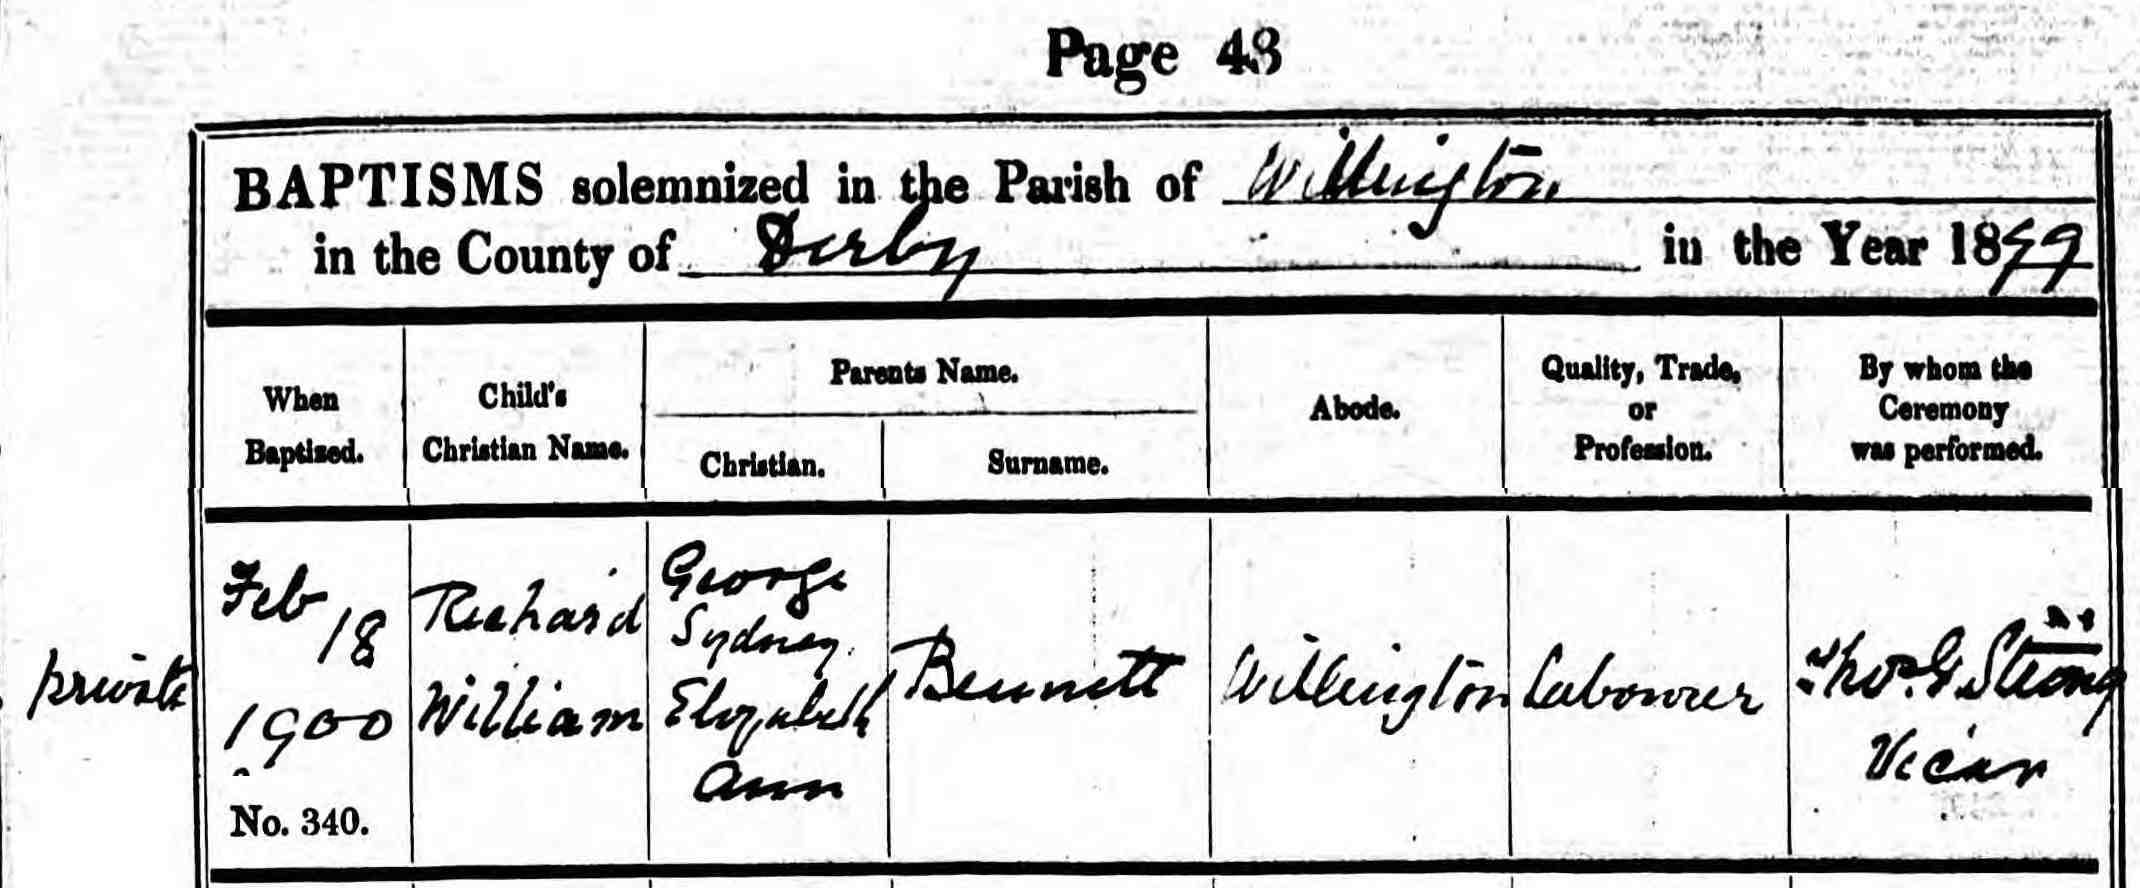 Page 43
BAPTISMS solemnized in the Parish of Willington
in the County of Derby in the Year 1899
When
Baptized.
Child's
Christian Name.
Parents Name.
Christian.
Surname.
Abode.
Quality, Trade,
or
Profession.
By whom the
Ceremony
was performed.
private
Feb 18
1900
No. 340.
Richard
William
George
Sydney
Elizabeth
Ann
Bennett
Willington
Labourer
Thos. G. Strong
Vicar